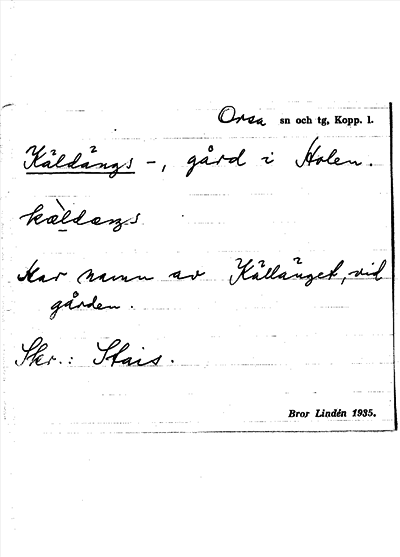 Orsa sn och tg, Kopp. l.
Käldängs -, gård i Holen.
kæ̀ldæŋs
Har namn av Källänget, vid
gården.
Skr.: Stais.
Bror Lindén 1935.